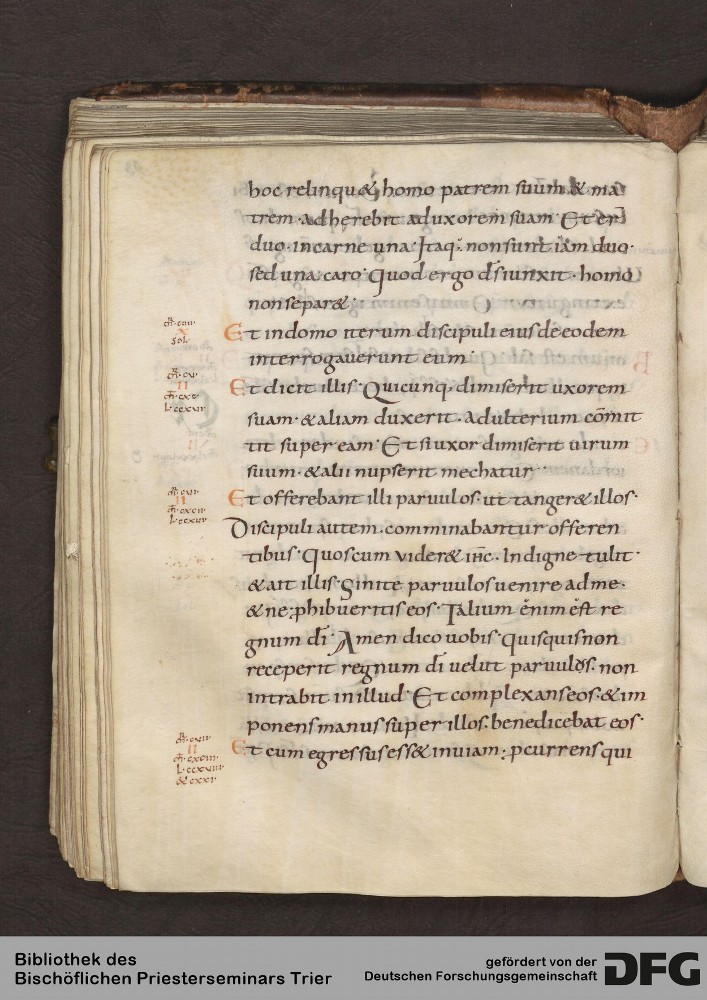 hoc relinqu& homo patrem suum & ma
trem· adherebit ad uxorem suam· Et er̄
duo· in carne una· Itaq· non sunt iam duo·
sed una caro· Quod ergo d̄s iunxit· homo
non separ&·
Mr̄·cıııı·
X
Sol·
Et in domo iterum discipuli eius de eodem
interrogauerunt eum·
Mr̄·cv·
II
L·ccxvı·
Et dicit illis· Quicunq· dimiserit uxorem
suam· & aliam duxerit· adulterium cōmit
tit super eam· Et si uxor dimiserit uirum
suum· & alii nupserit mechatur·
Mr̄·cvı·
II
L·ccxvı·
Et offerebant illi paruulos· ut tanger& illos·
Discipuli autem· comminabantur offeren
tibus· Quos cum vider& ih̄c· Indigne tulit·
& ait illis· Sinite paruulos uenire ad me·
& ne phibueritis eos· Talium enim est re
gnum dī· Amen dico uobis· quisquis non
receperit regnum dī uelut paruulus· non
intrabit in illud· Et complexans eos· & im
ponens manus super illos· benedicebat eos·
Mr̄·cvıı·
II
M̄·cxcııı·
L·ccxvııı·
& cxxı·
Et cum egressus ess& in uiam· pcurrens qui
Bibliothek des
Bischöflichen Priesterseminars Trier
gefördert von der
Deutschen Forschungsgemeinschaft
DFG